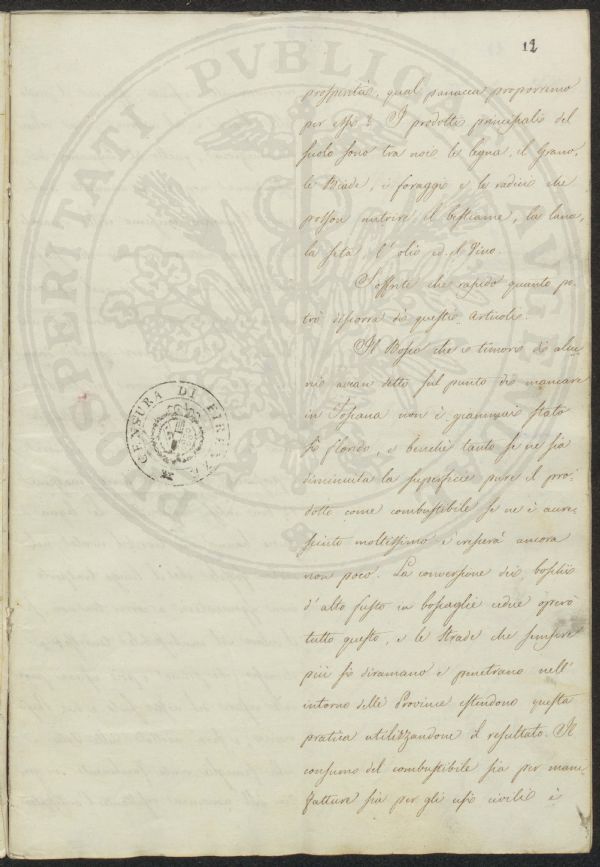 12
prosperità, qual panacea proporremo
per essi? I prodotti principali del
suolo sono tra noi le legna, il grano,
le Biade, i foraggi e le radici che
posson nutrire il bestiame, la lana,
la seta l'olio ed il Vino.
Soffrite che rapido quanto po-
trò discorra di questi articoli.
Il Bosco che i timori di alcu-
ni avean detto sul punto di mancare
in Toscana non è giammai stato
sì florido, e benchè tanto se ne sia
diminuita la superficie pure il pro-
dotto come combustibile se ne è accre-
sciuto moltissimo e crescerà ancora
non poco. La conversione dei boschi
d'alto fusto in boscaglie cedue operò
tutto questo, e le Strade che sempre
più si diramano e penetrano nell'
interno delle Province estendono questa
pratica utilizzandone il resultato. Il
consumo del combustibile sia per mani-
fatture sia per gli usi civili è
CENSURA DI FIRENZE
PROSPERITATI PUBLICAE AUGENDAE